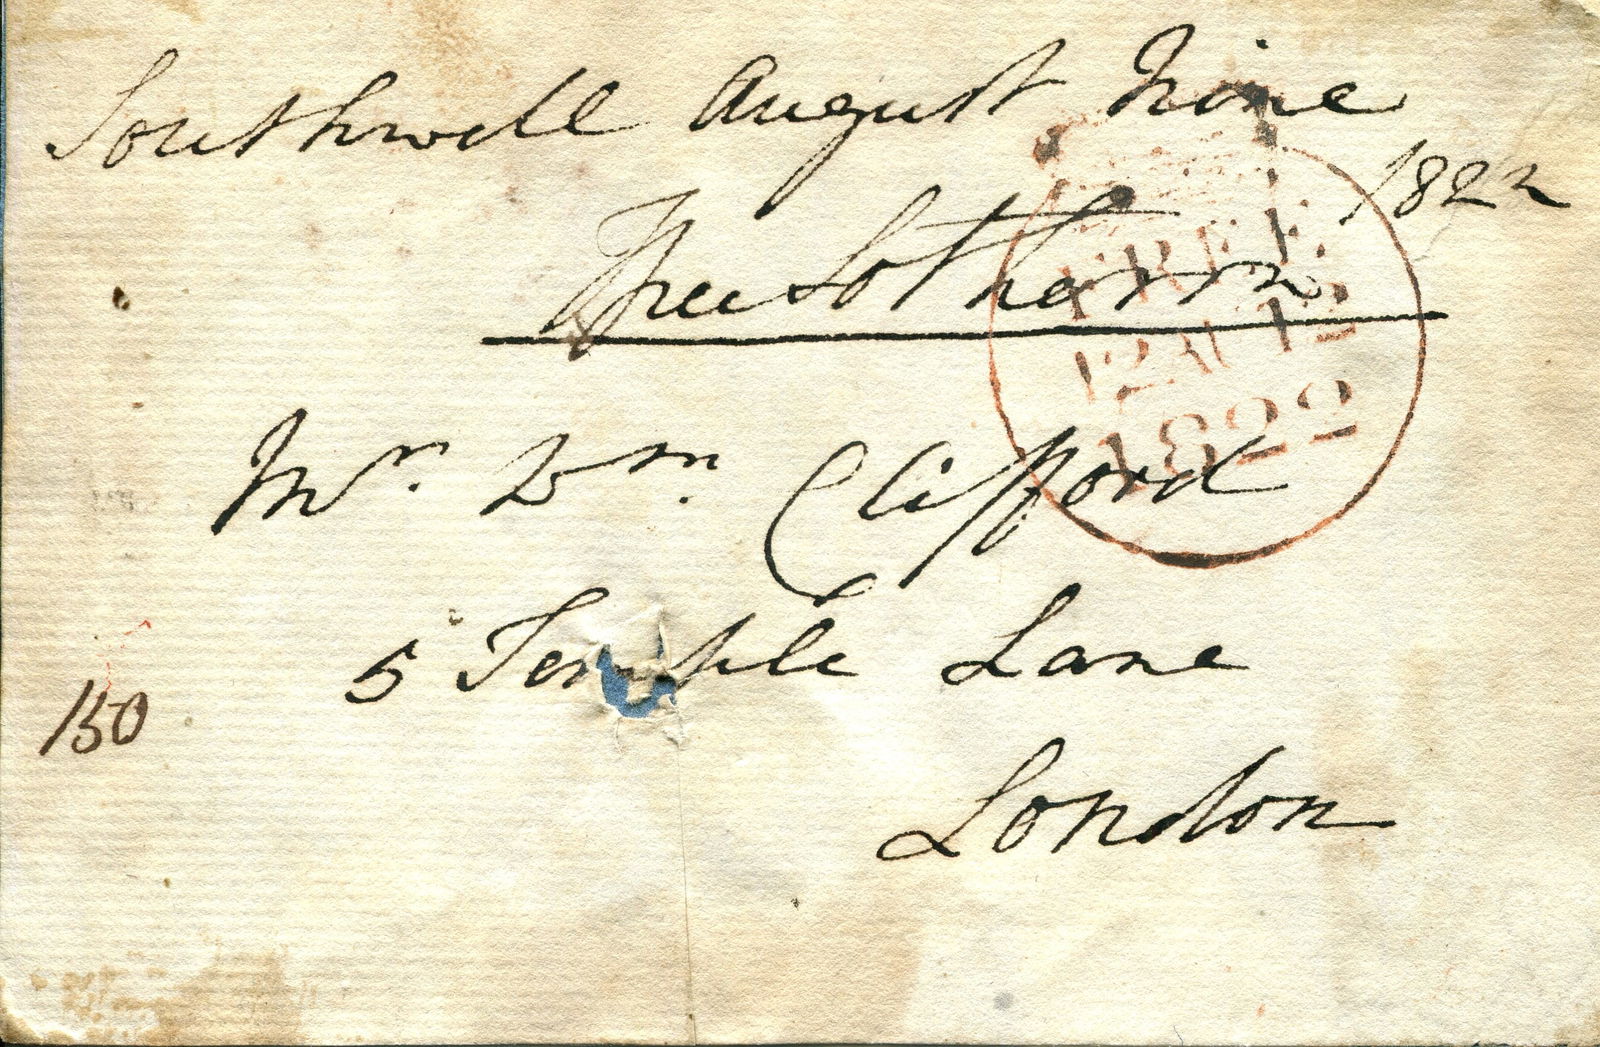 Southwell August Nine
1822
Free Sotheron
Mr. Wm. Clifford
5 Temple Lane
London
150
FREE
12 AU 12
1822